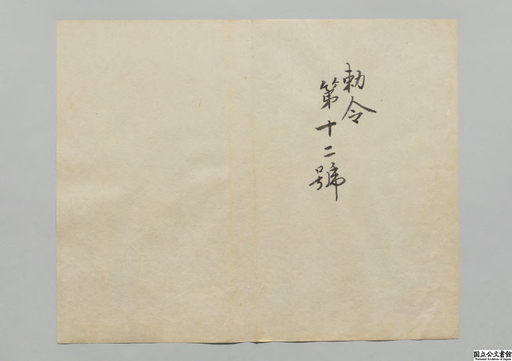 勅令
第十二號
国立公文書館
National Archives of Japan